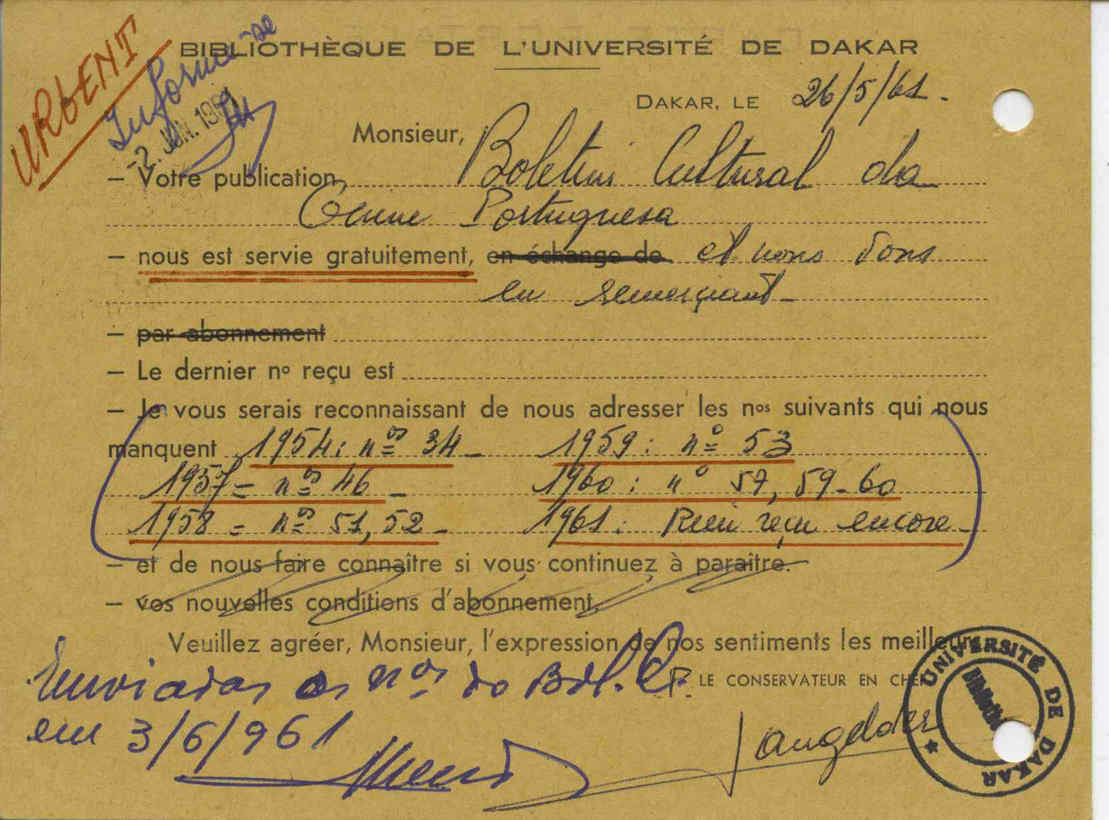 URGENT
Informe-se
-2. JUN. 1961
BIBLIOTHÈQUE DE L'UNIVERSITÉ DE DAKAR
DAKAR, LE 26/5/61.
Monsieur,
— Votre publication, Boletim Cultural da
Guiné Portuguesa
— nous est servie gratuitement, en échange de et nous vous
en remerçiant -
— par abonnement
— Le dernier nº reçu est
— Je vous serais reconnaissant de nous adresser les nos suivants qui nous
manquent 1954 : nº 34 - 1959 : nº 53
1957 = nº 46 - 1960 : nº 57, 59-60
1958 = nº 51, 52 - 1961 : Rien reçu encore -
— et de nous faire connaître si vous continuez à paraître.
— vos nouvelles conditions d'abonnement.
Veuillez agréer, Monsieur, l'expression de nos sentiments les meilleurs
P. LE CONSERVATEUR EN CHEF
Enviadas os nos do Bol. C.
em 3/6/961
UNIVERSITÉ DE DAKAR